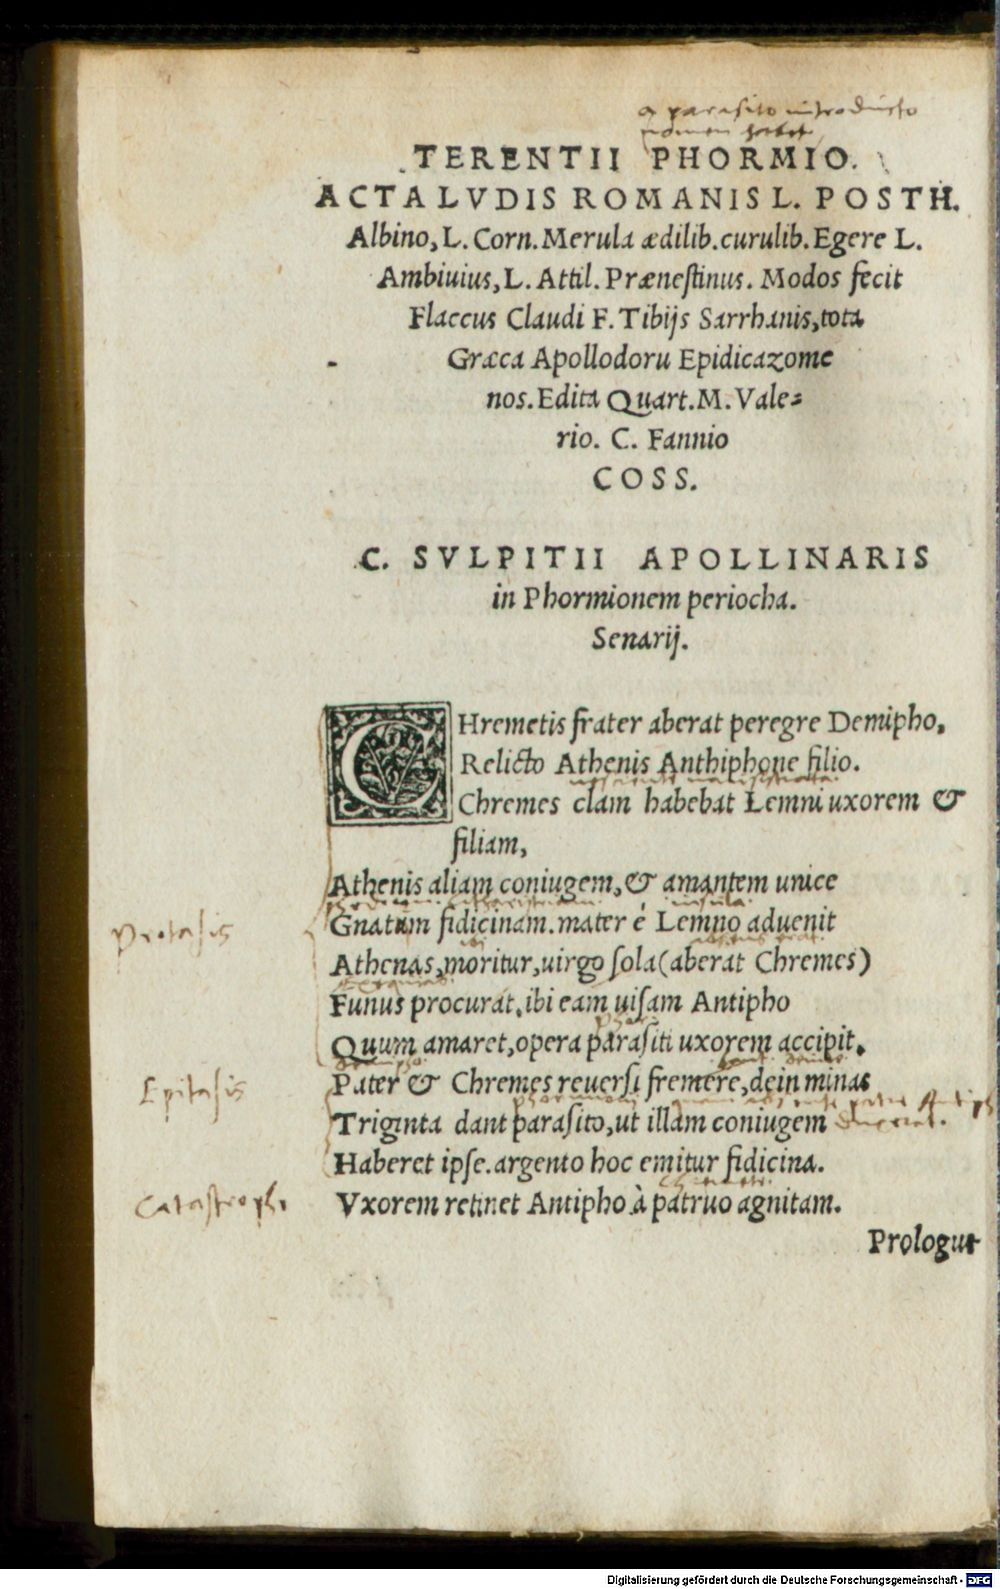 a parasito introducto
nomen habet
TERENTII PHORMIO.
ACTA LVDIS ROMANIS L. POSTH.
Albino, L. Corn. Merula ædilib. curulib. Egere L.
Ambiuius, L. Attil. Prænestinus. Modos fecit
Flaccus Claudi F. Tibijs Sarrhanis, tota
Græca Apollodoru Epidicazome
nos. Edita Quart. M. Vale=
rio. C. Fannio
COSS.
C. SVLPITII APOLLINARIS
in Phormionem periocha.
Senarij.
CHremetis frater aberat peregre Demipho,
Relicto Athenis Anthiphone filio.
Chremes clam habebat Lemni uxorem &
filiam,
Athenis aliam coniugem, & amantem unice
Gnatum fidicinam. mater é Lemno aduenit
Protasis
Athenas, moritur, uirgo sola (aberat Chremes)
Funus procurat, ibi eam uisam Antipho
Quum amaret, opera parasiti uxorem accipit.
Pater & Chremes reuersi fremere, dein minas
Epitasis
Triginta dant parasito, ut illam coniugem
Haberet ipse. argento hoc emitur fidicina.
Catastrophe
Vxorem retinet Antipho à patruo agnitam.
Prologus
Digitalisierung gefördert durch die Deutsche Forschungsgemeinschaft - DFG